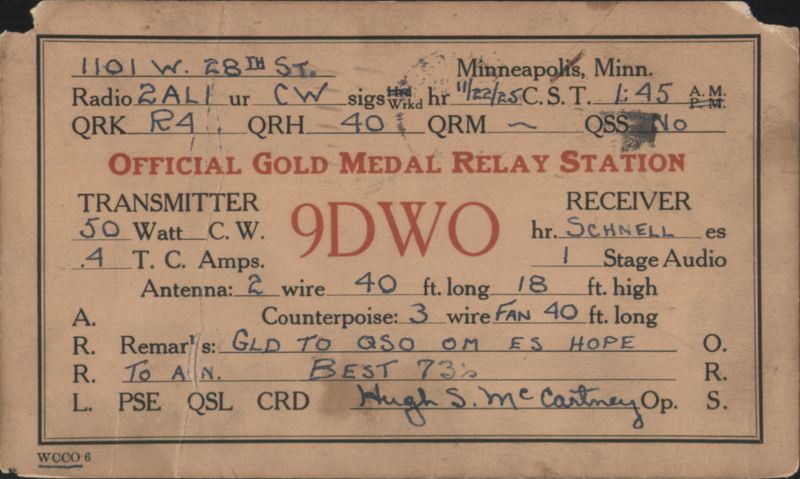 1101 W. 28TH ST. Minneapolis, Minn.
Radio 2AL1 ur CW sigs Hrd Wrkd hr 11/22/25 C. S. T. 1:45 A. M. P. M.
QRK R4 QRH 40 QRM ~ QSS No
OFFICIAL GOLD MEDAL RELAY STATION
TRANSMITTER 9DWO RECEIVER
50 Watt C. W. hr. SCHNELL es
.4 T. C. Amps. 1 Stage Audio
Antenna: 2 wire 40 ft. long 18 ft. high
A. Counterpoise: 3 wire FAN 40 ft. long
R. Remarks: GLD TO QSO OM ES HOPE O.
R. To A N. BEST 73s R.
L. PSE QSL CRD Hugh S. McCartney Op. S.
WCCO 6